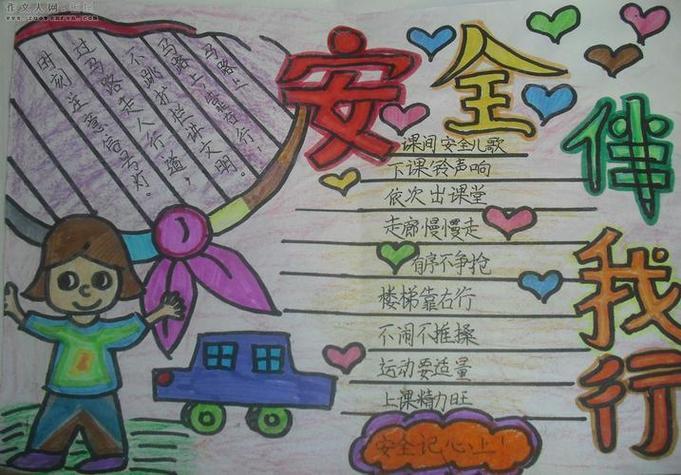 作文人网
安全伴我行
马路上,靠右行,
不跳护栏讲文明。
过马路走人行道,
时刻注意信号灯。
课间安全儿歌
下课铃声响
依次出课堂
走廊慢慢走
有序不争抢
楼梯靠右行
不闹不推搡
运动要适量
上课精力旺
安全记心上!